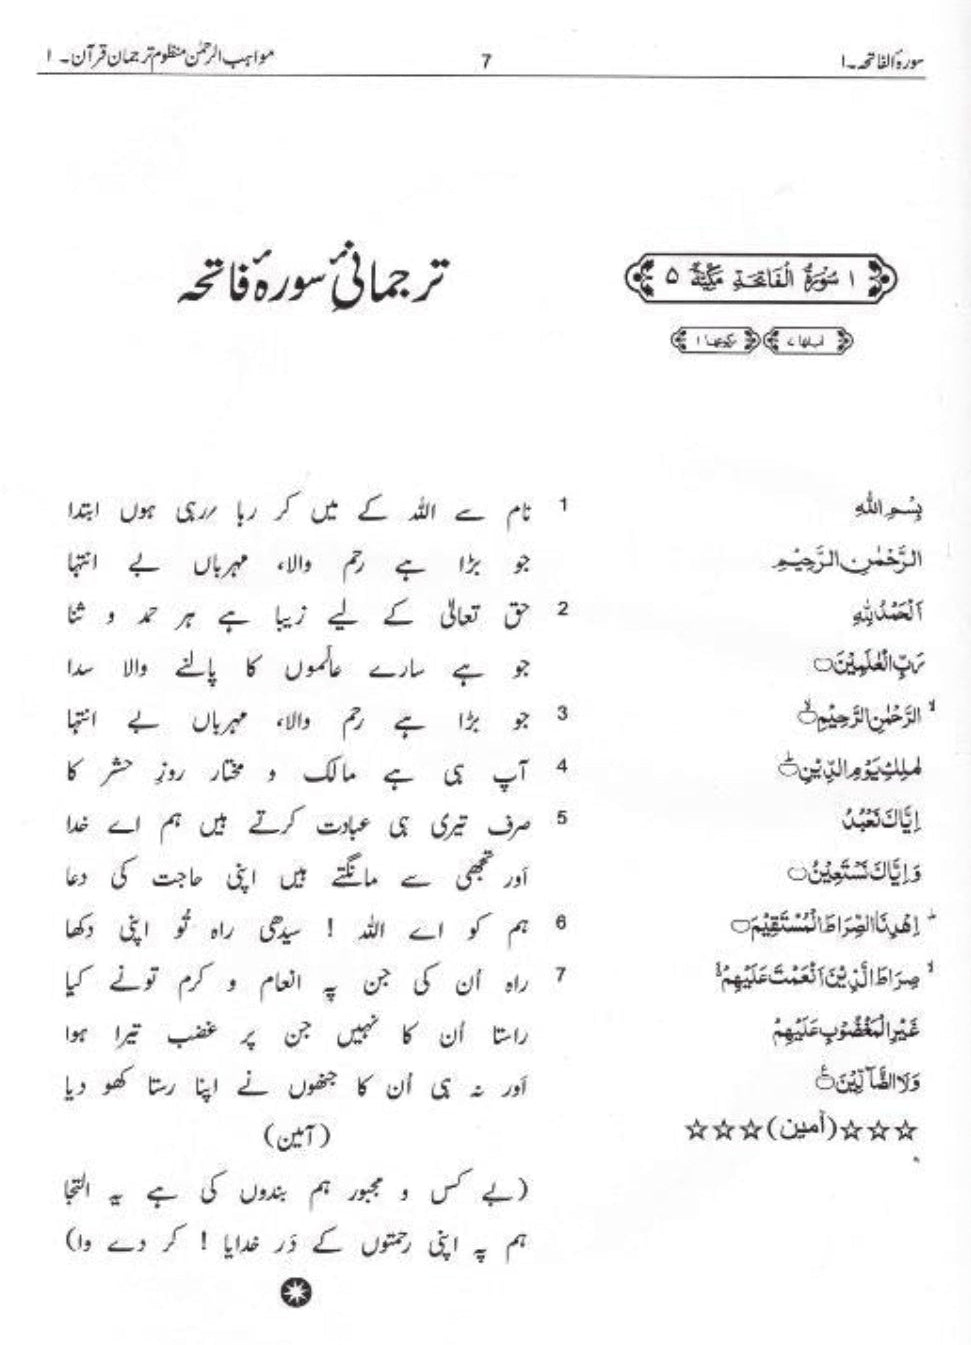 سورۂ الفاتحہ۔۱
7
مواہب الرحمٰن منظوم ترجمان قرآن۔ ۱
۱ سُوْرَةُ الْفَاتِحَةِ مَكِّيَّةٌ ۵
اٰیاتھا ۷ رکوعھا ۱
ترجمانیٔ سورۂ فاتحہ
بِسْمِ اللّٰهِ
1 نام سے اللہ کے میں کر رہا ررہی ہوں ابتدا
الرَّحْمٰنِ الرَّحِيْمِ
جو بڑا ہے رحم والا، مہرباں بے انتہا
اَلْحَمْدُ لِلّٰهِ
2 حق تعالیٰ کے لیے زیبا ہے ہر حمد و ثنا
رَبِّ الْعٰلَمِيْنَ ۝
جو ہے سارے عالَموں کا پالنے والا سدا
الرَّحْمٰنِ الرَّحِيْمِ ۝ۙ
3 جو بڑا ہے رحم والا، مہرباں بے انتہا
مٰلِكِ يَوْمِ الدِّيْنِ ۝ؕ
4 آپ ہی ہے مالک و مختار روزِ حشر کا
اِيَّاكَ نَعْبُدُ
5 صرف تیری ہی عبادت کرتے ہیں ہم اے خدا
وَاِيَّاكَ نَسْتَعِيْنُ ۝
اَور تجھی سے مانگتے ہیں اپنی حاجت کی دعا
اِهْدِنَا الصِّرَاطَ الْمُسْتَقِيْمَ ۝
6 ہم کو اے اللہ ! سیدھی راہ تُو اپنی دکھا
صِرَاطَ الَّذِيْنَ اَنْعَمْتَ عَلَيْهِمْ ۙ
7 راہ اُن کی جن پہ انعام و کرم تونے کیا
غَيْرِ الْمَغْضُوْبِ عَلَيْهِمْ
راستا اُن کا نہیں جن پر غضب تیرا ہوا
وَلَا الضَّآلِّيْنَ ۝
اَور نہ ہی اُن کا جنھوں نے اپنا رستا کھو دیا
☆☆☆(اٰمین)☆☆☆
(آمین)
(بے کس و مجبور ہم بندوں کی ہے یہ التجا
ہم پہ اپنی رحمتوں کے دَر خدایا ! کر دے وا)